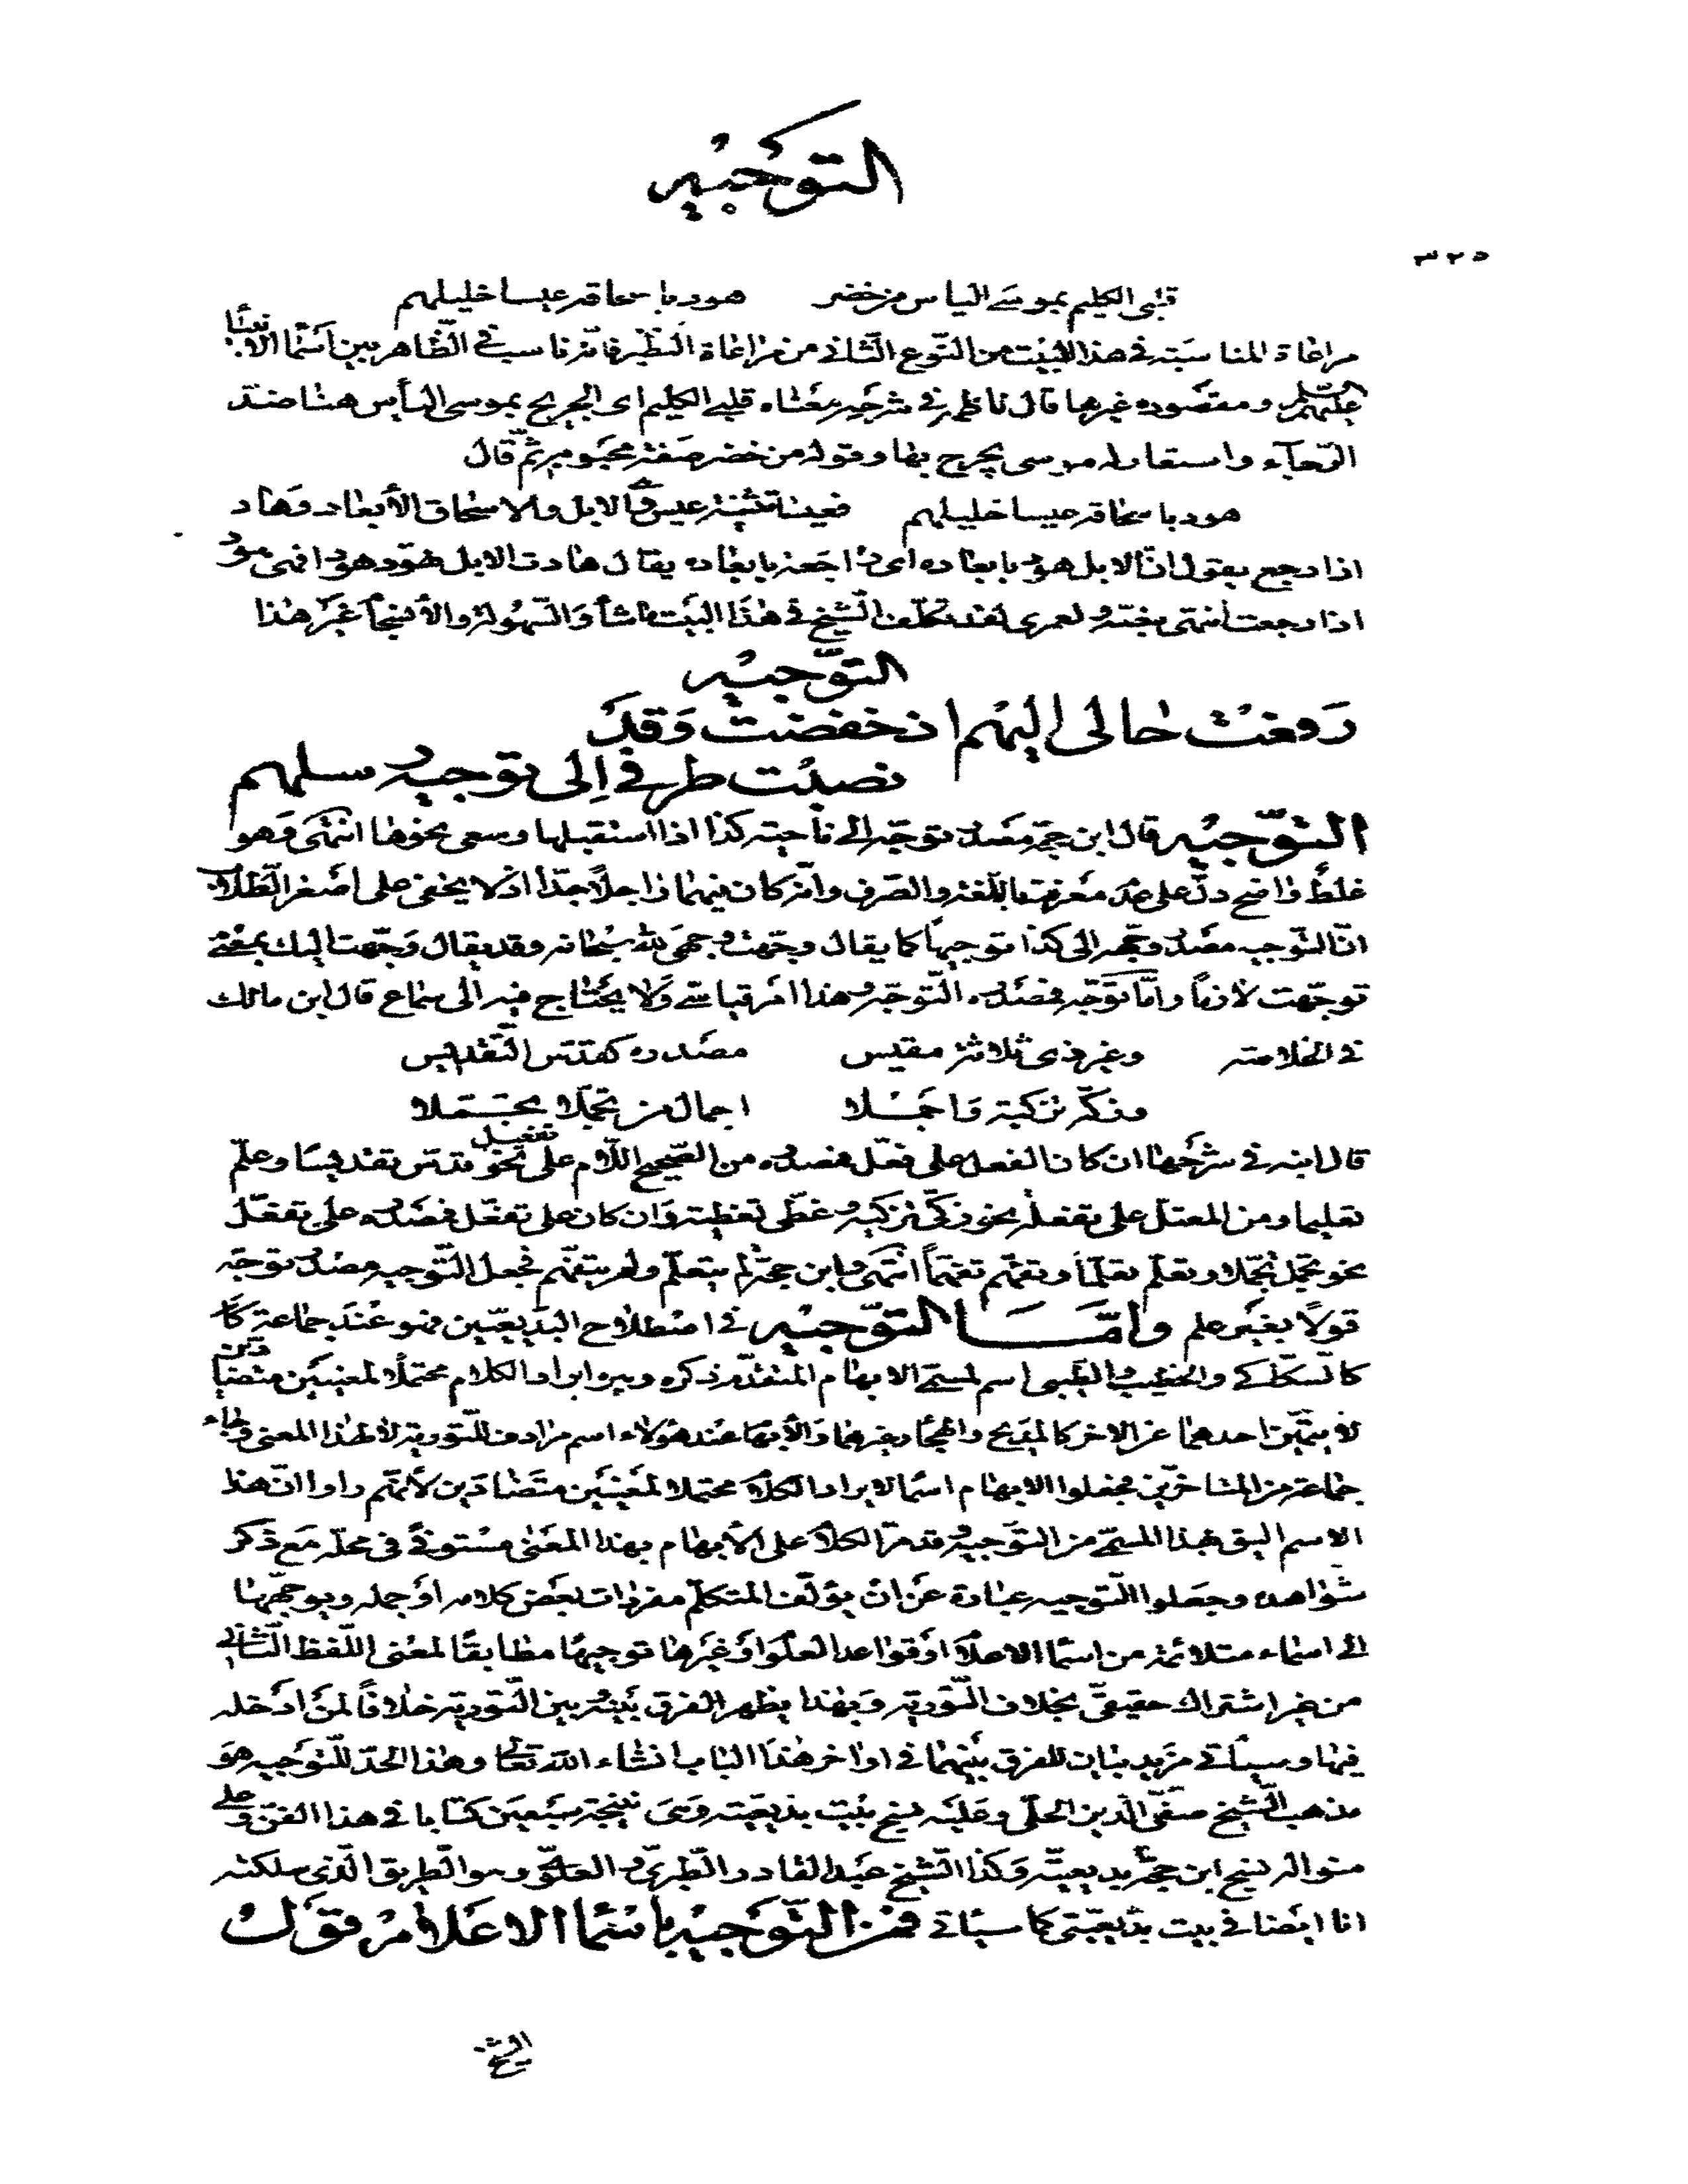 التوجيه
٣٢٥
قلبى الكليم بموسى الياس من خضر هود باسحاقه عيسا خليلهم
مراعاة المناسبة فى هذا البيت من النوع الثانى من مراعاة النظير فانه ناسب فى الظاهر بين اسما الانبيا
عليهم السلم ومقصوده غيرها قال ناظمه فى شرحه معناه قلبى الكليم اى الجريح بموسى الياس هنا ضد
الرجآء واستعار له موسى يجرح بها وقوله من خضر صفة محبوبه ثم قال
هود باسحاقه عيسا خليلهم فعيسا تثنية عيس وهى الابل والاسحاق الأبعاد وهاد
اذا رجع يقول انّ الابل هود بابعاده اى راجعة بابعاده يقال هادت الابل تهود هودا فهى هود
اذا رجعت انتهى بنصّه ولعمرى لقد تكلّف الشيخ فى هذا البيت ماشأ والسّهولة والانسجام غير هذا
التوّجيه
رفعت حالى اليهم اذ خفضت وقد
نصبت طرفى الى توجيه سلمهم
التوّجيه قال ابن حجّة مصدر توجّه الى ناحية كذا اذا استقبلها وسعى نحوها انتهى وهو
غلط واضح دلّ على عدم معرفته باللّغة والصّرف وانّه كان فيهما راجلاً جدّا اذ لا يخفى على اصغر الطّلاب
انّ التّوجيه مصدر وجّه الى كذا توجيهاً كما يقال وجّهت وجهى لله سبحانه وقد يقال وجّهت اليك بمعنى
توجّهت لازماً وامّا توجّه فمصدره التّوجّه وهذا امر قياسىّ ولا يحتاج فيه الى سماع قال ابن مالك
فى الخلاصة وغير ذى ثلاثة مقيس مصدره كقدّس التّقديس
وزكّه تزكية واجملا اجمال من تجمّلا تجمّلا
قال ابنه فى شرحها ان كان الفعل على فعّل فمصدره من الصّحيح اللّام على تفعيل نحو قدّس تقديسا وعلّم
تعليما ومن المعتلّ على تفعلة نحو زكّى تزكية وغطّى تغطية وان كان على تفعّل فمصدره على تفعّل
نحو تجمّل تجمّلا وتعلّم تعلّماً وتفهّم تفهّماً انتهى وابن حجّة لم يتعلّم ولم يتفهّم فجعل التّوجيه مصدر توجّه
قولاً بغير علم وامّا التوّجيه فى اصطلاح البديعيّين فهو عند جماعة
كالسّكّاكى والخطيب والطّيبى اسم لمسمّى الابهام المتقدّم ذكره وهو ايراد الكلام محتملاً لمعنيين متضادّين
لا يتميّز احدهما عن الاخر كالمديح والهجاء وغيرهما والأبهام عند هؤلاء اسم مرادف للتّورية لا لهذا المعنى وجاء
جماعة من المتاخّرين فجعلوا الابهام اسما لايراد الكلام محتملا لمعنيين متضادّين لأنّهم راوا انّ هذا
الاسم اليق بهذا المسمّى من التّوجيه وقد مرّ الكلام على الأبهام بهذا المعنى مستوفىً فى محلّه مع ذكر
شواهده وجعلوا التّوجيه عبارة عن ان يؤلّف المتكلّم مفردات بعض كلامه او جمله ويوجّهها
الى اسماء متلائمة من اسما الاعلام او قواعد العلوم او غيرها توجيهًا مطابقًا لمعنى اللّفظ الثّانى
من غير اشتراك حقيقىّ بخلاف التّورية وبهذا يظهر الفرق بينه وبين التّورية خلافًا لمن ادخله
فيها وسياتى مزيد بيان للفرق بينهما فى اواخر هذا الباب انشاء الله تعالى وهذا الحدّ للتّوجيه هو
مذهب الشّيخ صفىّ الدين الحلّى وعليه نسج بيت بديعيّته وهى نتيجة سبعين كتابا فى هذا الفنّ وعلى
منواله نسج ابن حجّة بديعيّته وكذا الشّيخ عبد القادر الطّبرىّ والعلوىّ وهو الطّريق الّذى سلكته
انا ايضا فى بيت بديعيّتى كما سياتى فمن التّوجيه باسما الاعلام قول
الشيخ